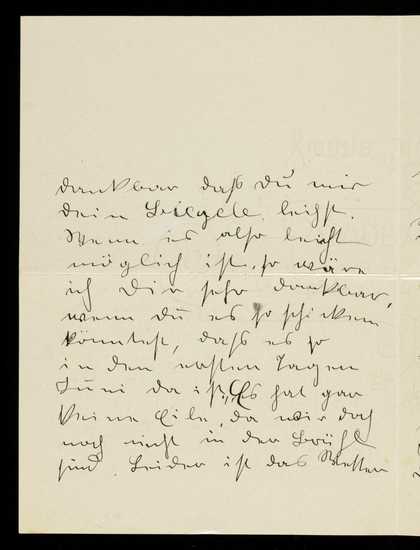 dankbar daß Du mir
dein Bicycle leihst.
Wenn es also leicht
möglich ist, so wäre
ich Dir sehr dankbar,
wenn du es so schicken
könntest, daß es so
in den ersten Tagen
Juni da ist, Es hat gar
keine Eile, da wir doch
noch nicht in der Brühl
sind. Leider ist das Wetter